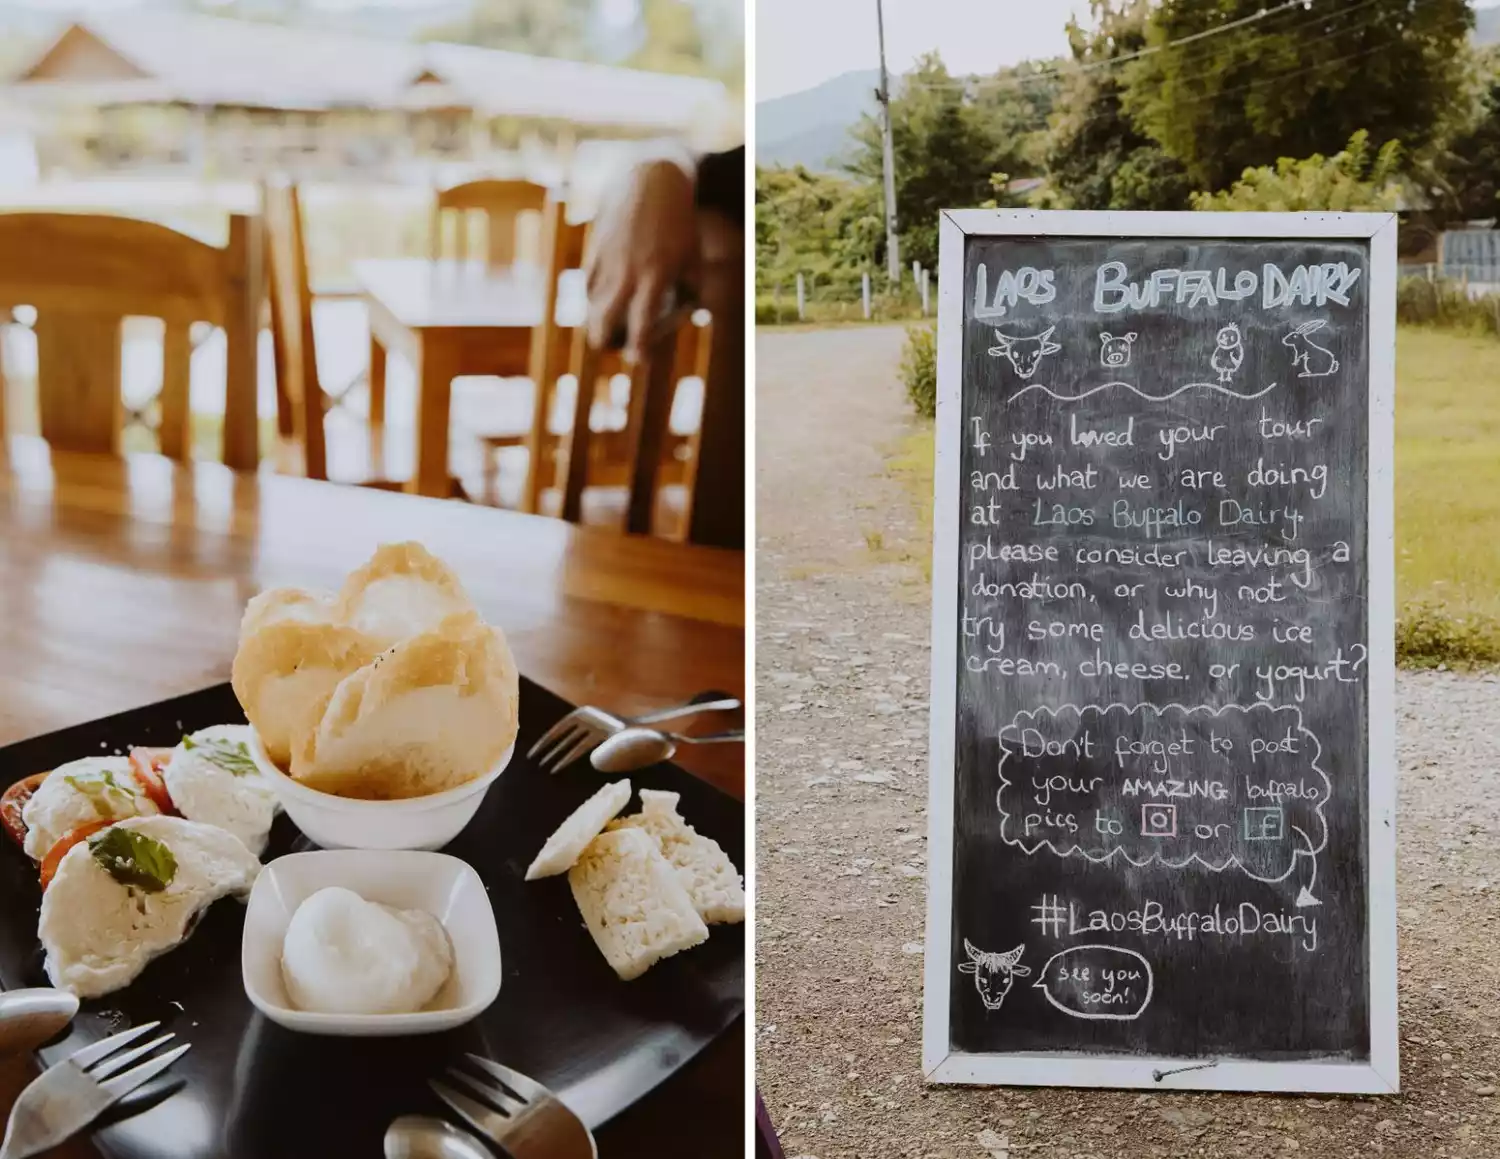 LAOS BUFFALO DAIRY
If you loved your tour
and what we are doing
at Laos Buffalo Dairy.
please consider leaving a
donation, or why not
try some delicious ice
cream, cheese. or yogurt?
Don't forget to post
your AMAZING buffalo
pics to or f
#LaosBuffaloDairy
see you
soon!